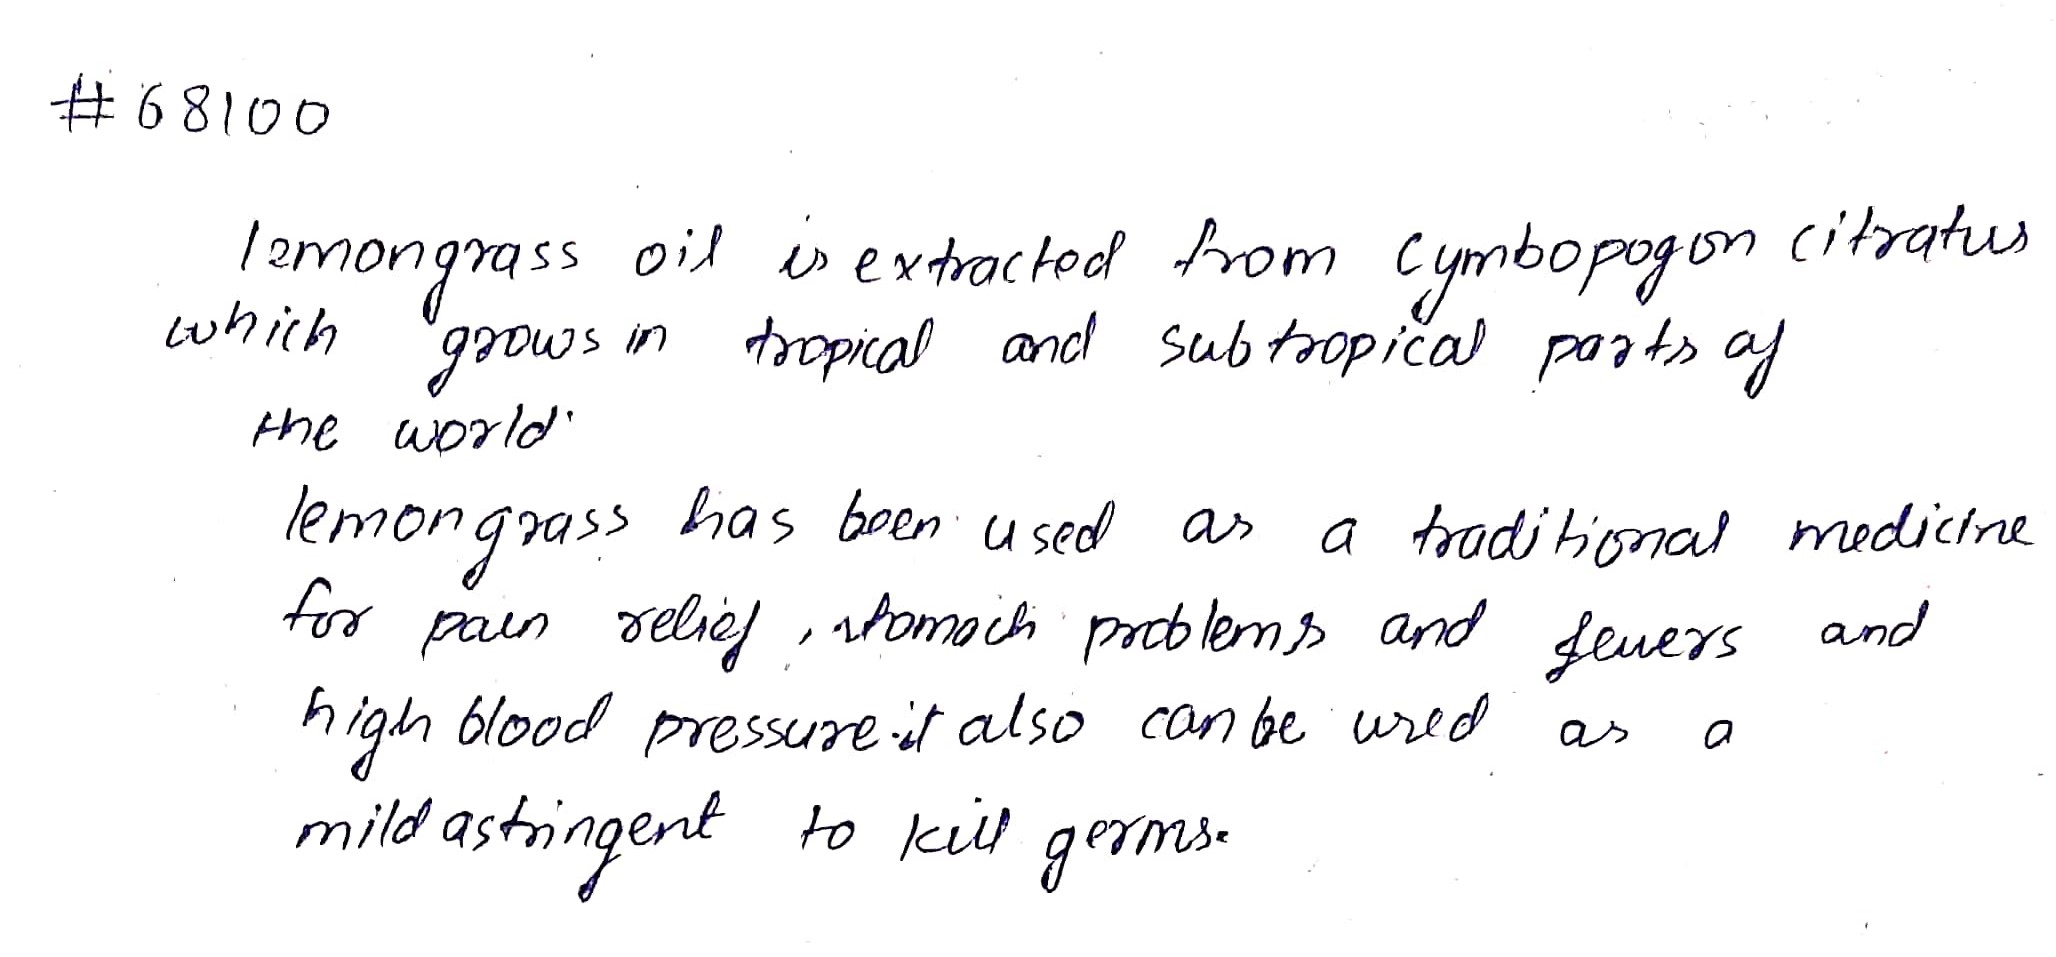 #68100
lemongrass oil is extracted from Cymbopogon citratus
which grows in tropical and subtropical parts of
the world.
lemongrass has been used as a traditional medicine
for pain relief, stomach problems and fevers and
high blood pressure.it also can be used as a
mild astringent to kill germs.